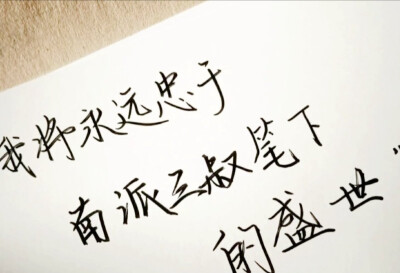 我将永远忠于
南派三叔笔下
的盛世"